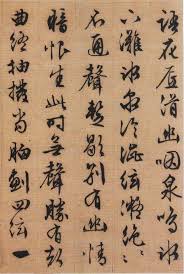 語花底滑幽咽泉鳴冰
下灘冰泉冷澀絃凝絕〻
不通聲暫歇別有幽情
暗恨生此時無聲勝有聲
曲終抽撥當胸劃四絃一